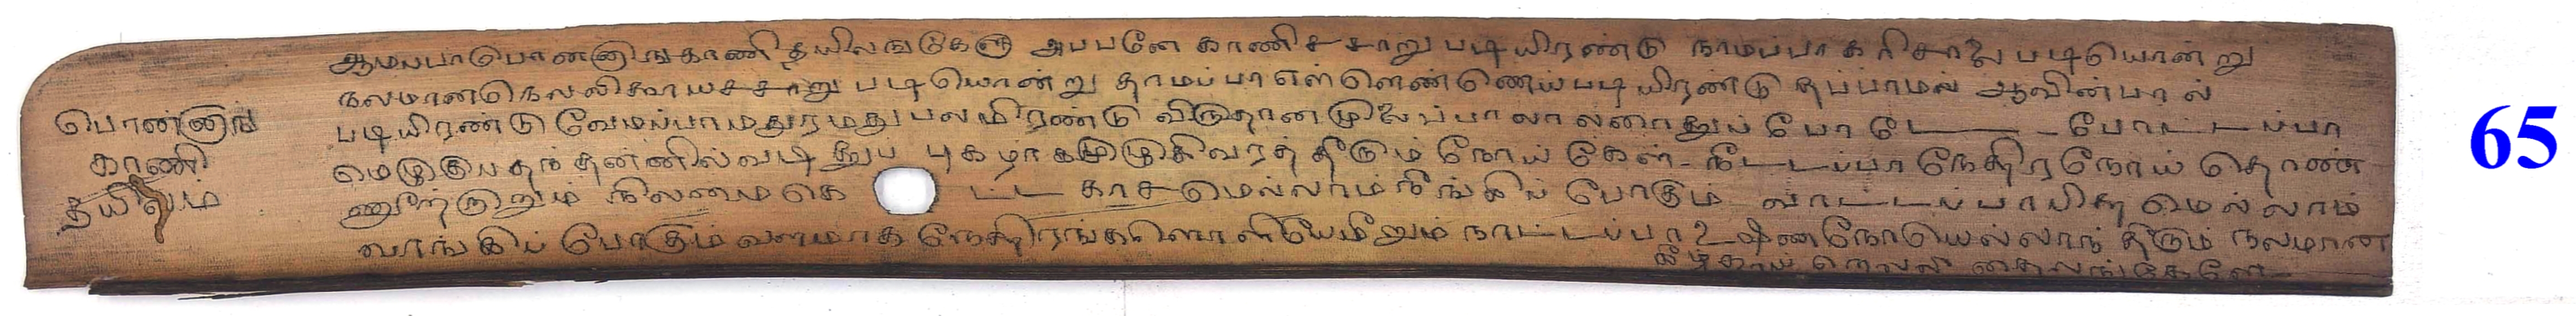 பொன்னாங்
காணி
தயிலம்
ஆமப்பா பொன்னாங்காணி தயிலங்கேளு அப்பனே காணிச்சாறு படியிரண்டு நாமப்பா கரிசாலை படியொன்று
நலமானநெல்லிகாயச்சாறு படியொன்று தாமப்பா எள்ளெண்ணெய்படியிரண்டு தப்பாமல் ஆவின்பால்
படியிரண்டு வேமப்பாமதுரமது பலமிரண்டு விடுதானமுலைப்பாலாலரைத்துப் போடே - போட்டப்பா
மெழுகுபதந்தன்னில்வடித்துப் புகழாக முழுகிவரத் தீரும் நோய் கேள் நீட்டப்பா நேத்திரநோய் தொண்
ணூற்றாறும் நிலமை கெ ட்ட காசமெல்லாம் நீங்கிப் போகும் வாட்டப்பாபித்தமெல்லாம்
வாங்கிப் போகும் வளமாக நேத்திரங்களொளியேமீறும் நாட்டப்பா உஷ்ணநோயெல்லாந் தீரும் நலமான
கீழ்காய் நெல்லி தைலங்கேளே